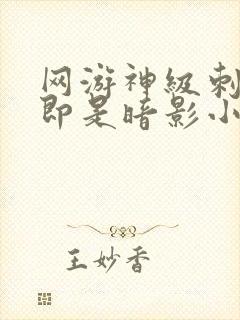 网游神级刺
即是暗影小
王妙香